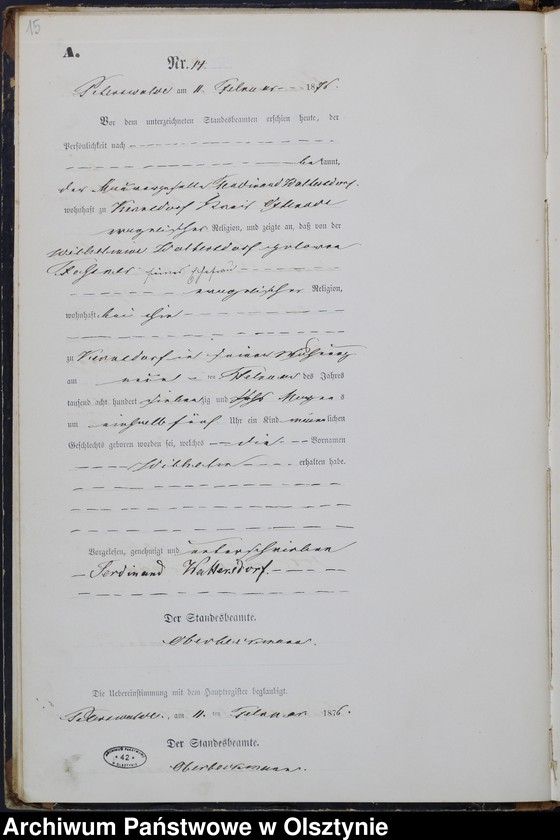 15
A.
Nr. 14.
Peterswalde am 11. Februar 1876.
Vor dem unterzeichneten Standesbeamten erschien heute, der
Persönlichkeit nach
bekannt,
der Maurergeselle Ferdinand Kattersdorf,
wohnhaft zu Kreis Osterode
evangelischer Religion, und zeigte an, daß von der
Wilhelmine Kattersdorf geborene
seiner Ehefrau
evangelischer Religion,
wohnhaft bei ihm
zu in seiner Wohnung
am neunten Februar des Jahres
tausend acht hundert siebenzig und sechs Morgens
um einhalb fünf Uhr ein Kind männlichen
Geschlechts geboren worden sei, welches die Vornamen
Wilhelm erhalten habe.
Vorgelesen, genehmigt und unterschrieben
Ferdinand Kattersdorf.
Der Standesbeamte.
Die Uebereinstimmung mit dem Hauptregister beglaubigt.
Peterswalde, am 11. ten Februar 1876.
Der Standesbeamte.
ARCHIWUM PAŃSTWOWE
* 42 *
W OLSZTYNIE
Archiwum Państwowe w Olsztynie